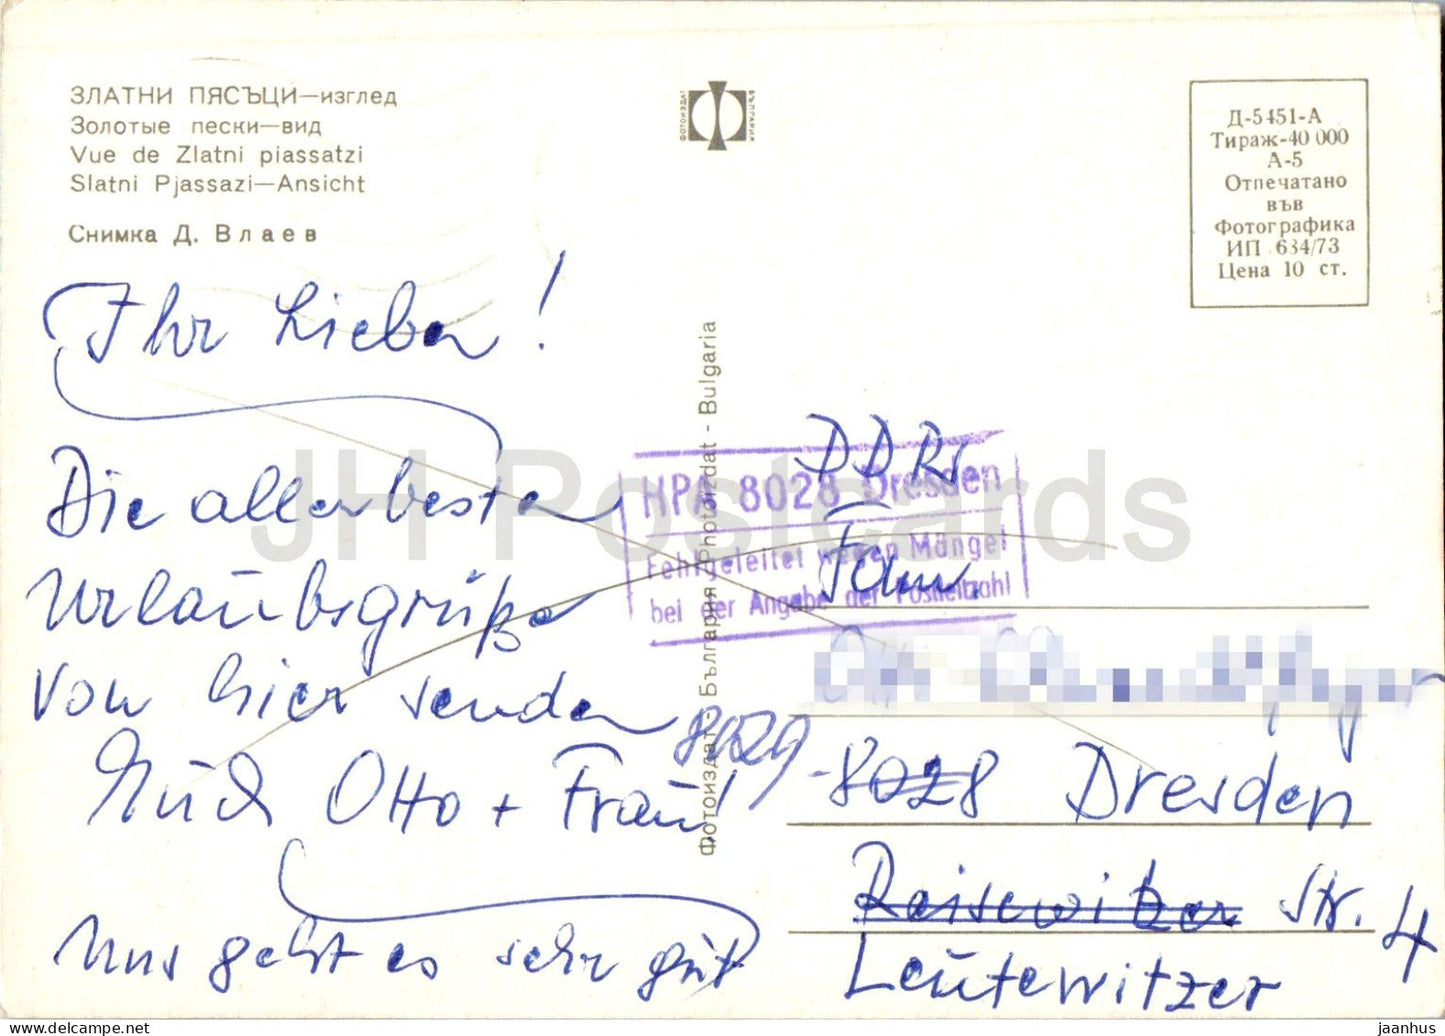 ЗЛАТНИ ПЯСЪЦИ—изглед
Золотые пески—вид
Vue de Zlatni piassatzi
Slatni Pjassazi—Ansicht
Снимка Д. Влаев
ФОТОИЗДАТ
БЪЛГАРИЯ
Д-5451-А
Тираж-40 000
А-5
Отпечатано
във
Фотографика
ИП 634/73
Цена 10 ст.
Ihr Lieben!
Die allerbesten
Urlaubsgrüße
von hier senden
Otto + Frau!
Uns geht es sehr gut
Фотоиздат - България Photoizdat - Bulgaria
HPA 8028 Dresden
Fehlgeleitet wegen Mängel
bei der Angabe der Postleitzahl
DDR
Fam.
8029 - 8028 Dresden
Reisewitzer Str. 4
Leutewitzer
JH Postcards
jaanhus @ delcampe.net